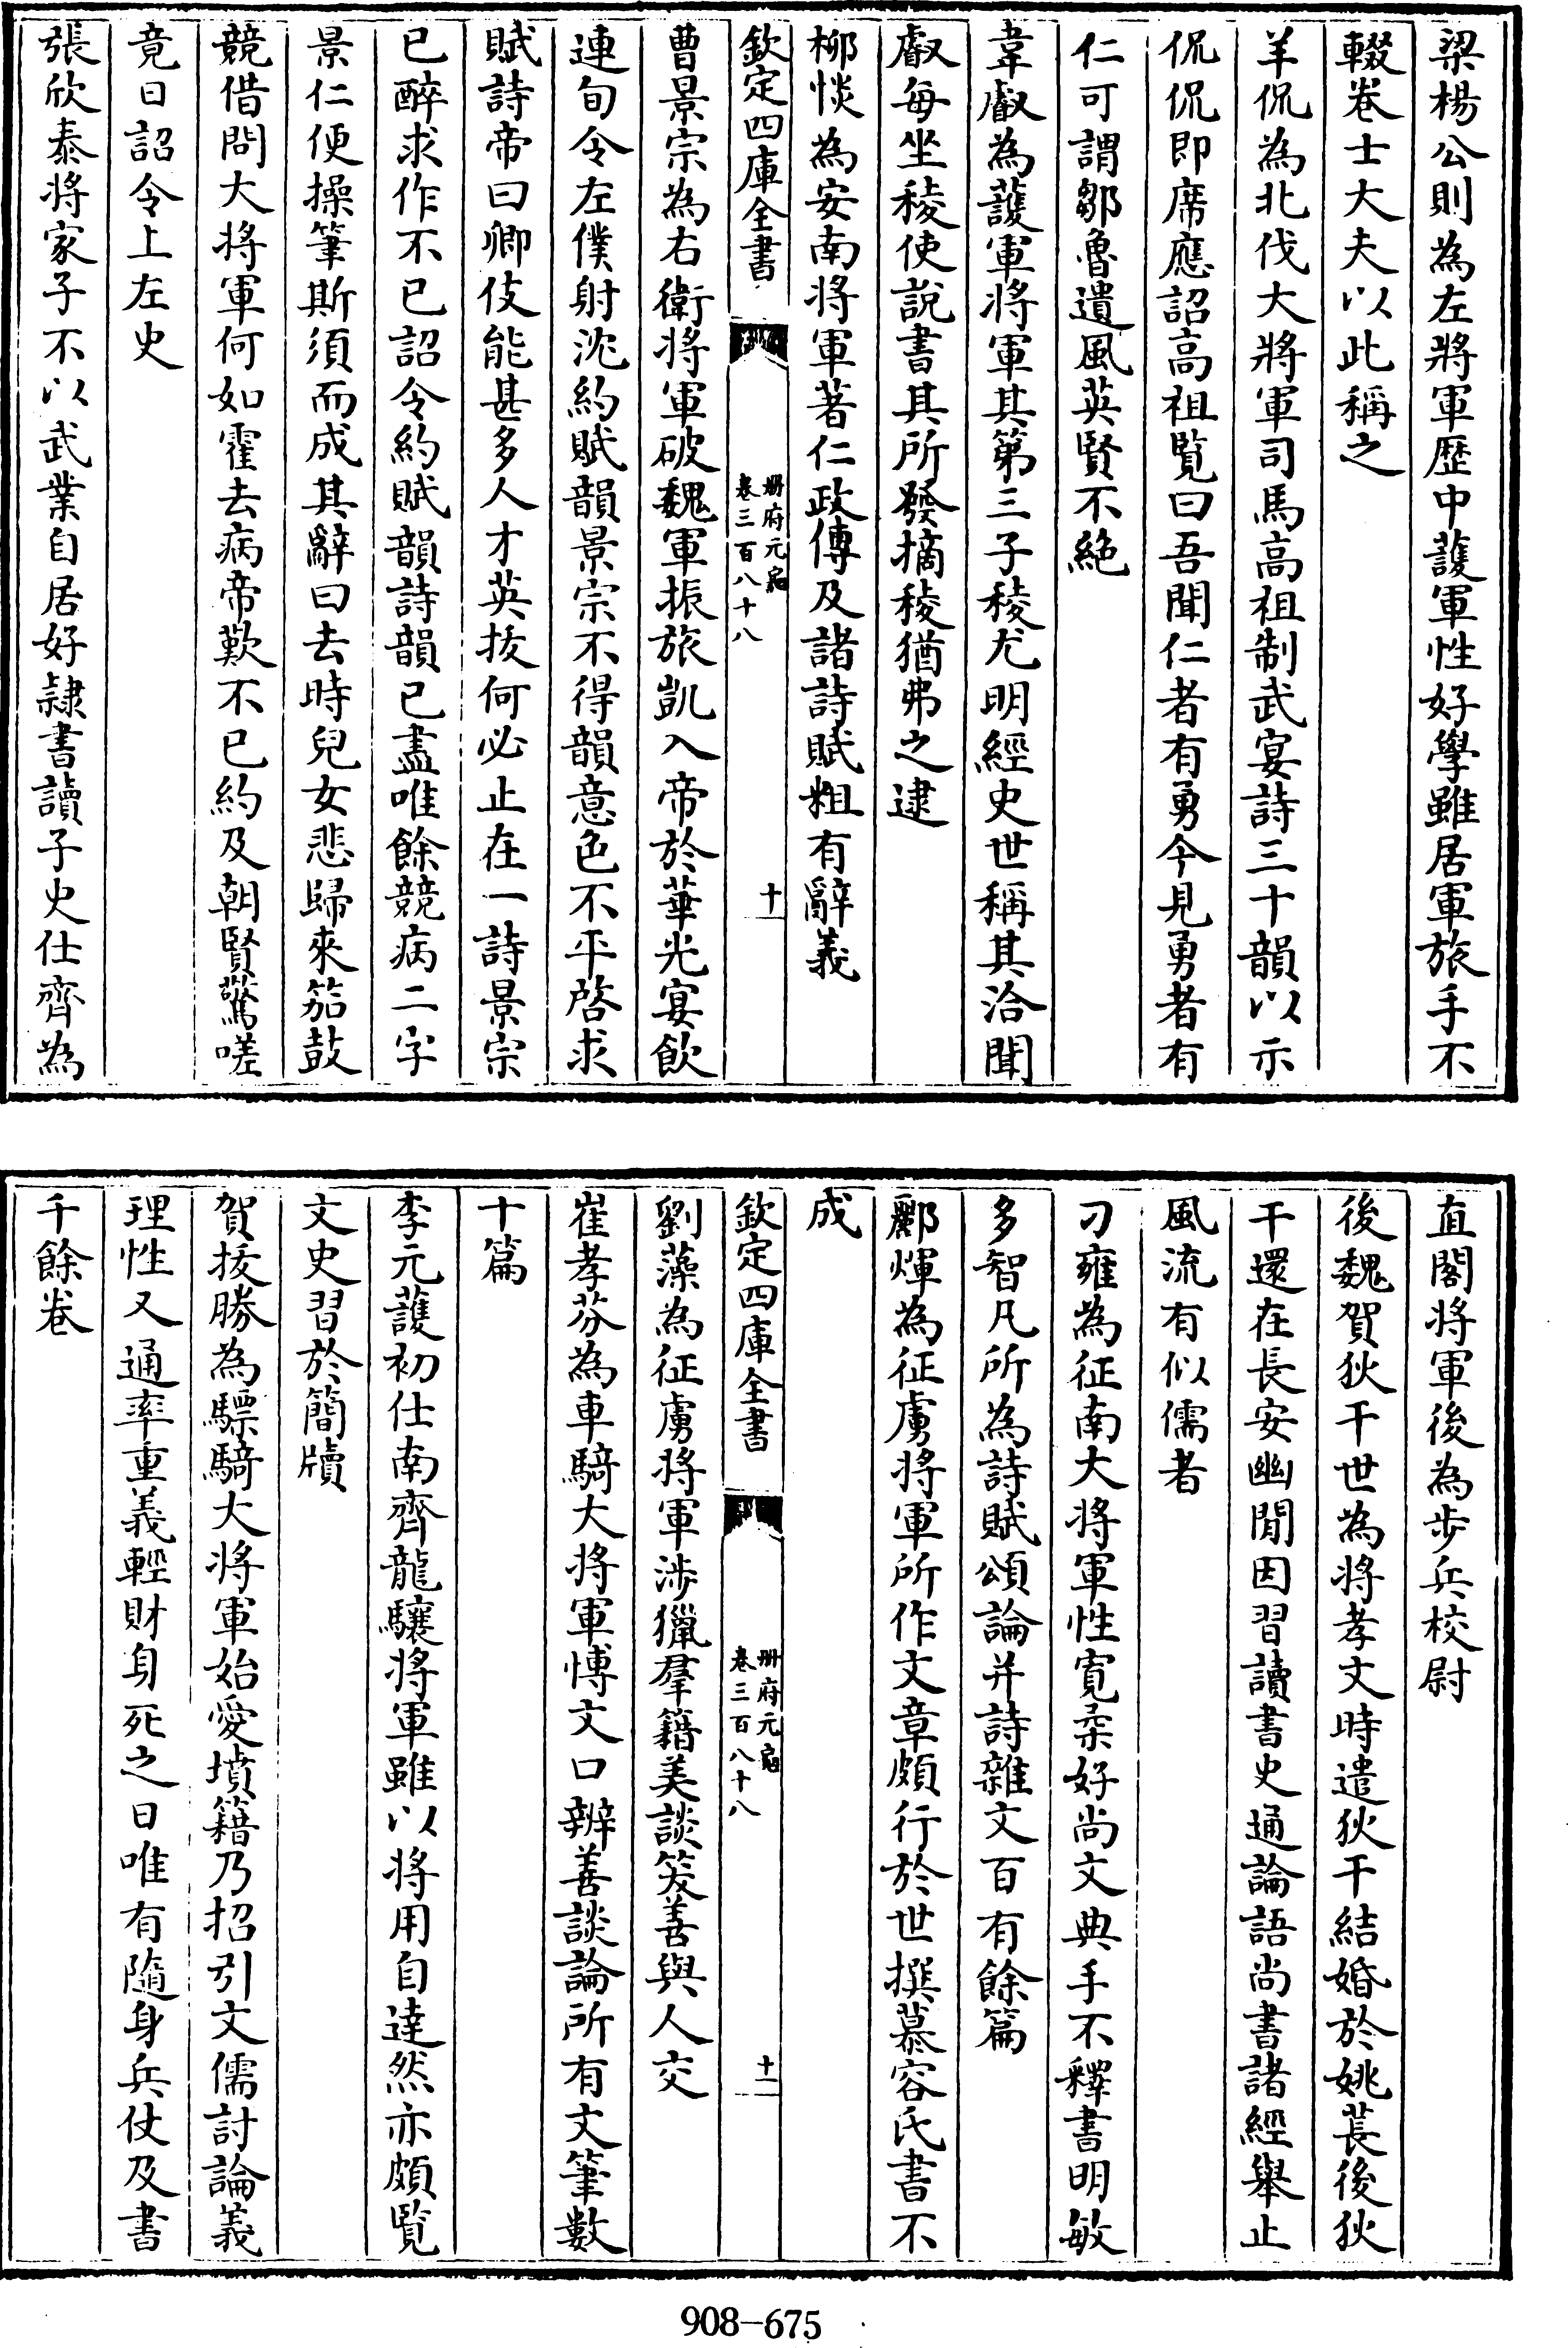 梁楊公則為左將軍歴中䕶軍性好學雖居軍旅手不
輟巻士大夫以此稱之
羊侃為北伐大將軍司馬高祖制武宴詩三十韻以示
侃侃即席應詔高祖覧曰吾聞仁者有勇今見勇者有
仁可謂鄒魯遺風英賢不絶
韋叡為䕶軍將軍其第三子稜尤明經史世稱其洽聞
叡每坐稜使説書其所發摘稜猶弗之逮
柳惔為安南将軍著仁政傳及諸詩賦粗有辭義
欽定四庫全書
册府元龜
巻三百八十八
十
曹景宗為右衛将軍破魏軍振旅凱入帝於華光宴飲
連句令左僕射沈約賦韻景宗不得韻意色不平啓求
賦詩帝曰卿伎能甚多人才英抜何必止在一詩景宗
已醉求作不已詔令約賦韻詩韻已盡唯餘競病二字
景仁便操筆斯須而成其辭曰去時兒女悲歸來笳鼓
競借問大将軍何如霍去病帝歎不已約及朝賢驚嗟
竟日詔令上左史
張欣泰将家子不以武業自居好隷書讀子史仕齊為
直閣将軍後為歩兵校尉
後魏賀狄干世為将孝文時遣狄干結婚於姚萇後狄
干還在長安幽閒因習讀書史通論語尚書諸經舉止
風流有似儒者
刁雍為征南大将軍性寛柔好尚文典手不釋書明敏
多智凡所為詩賦頌論并詩雜文百有餘篇
酈惲為征虜将軍所作文章頗行於世撰慕容氏書不
成
欽定四庫全書
册府元龜
巻三百八十八
十一
劉藻為征虜将軍涉獵羣籍美談笑善與人交
崔孝芬為車騎大将軍博文口辨善談論所有文筆數
十篇
李元䕶初仕南齊龍驤将軍雖以将用自達然亦頗覧
文史習於簡牘
賀抜勝為驃騎大将軍始愛墳籍乃招引文儒討論義
理性又通率重義輕財身死之日唯有隨身兵仗及書
千餘巻
908-675